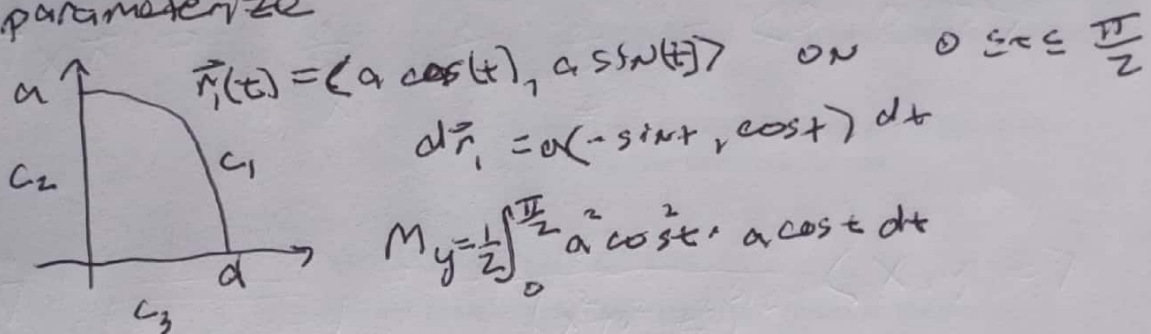 parameterize
a r⃗₁(t) = ⟨a cos(t), a sin(t)⟩ ON 0 ≤ t ≤ π/2
dr⃗₁ = a⟨-sint, cost⟩ dt
C₂ C₁
M_y = 1/2 ∫₀^{π/2} a² cos²t · a cos t dt
a
C₃